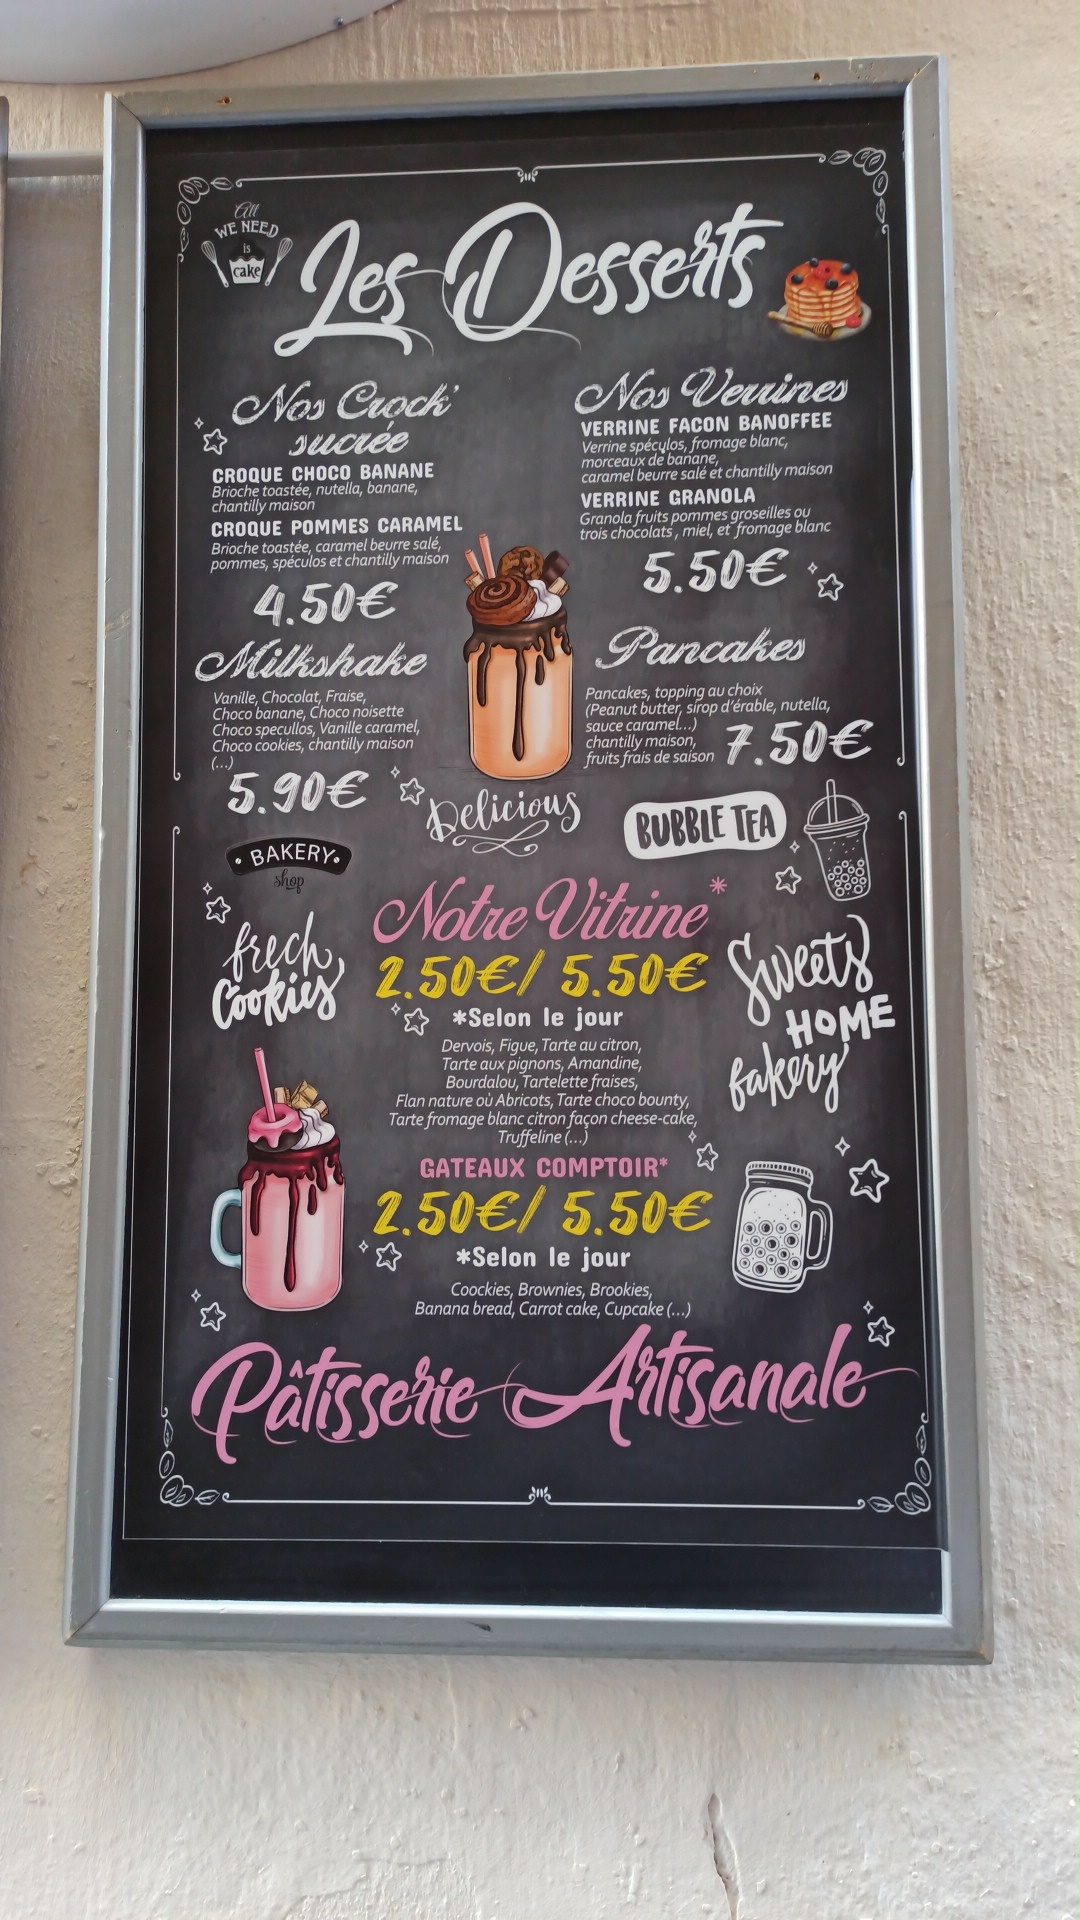 All
WE NEED
is
cake
Les Desserts
Nos Crock'
sucrée
CROQUE CHOCO BANANE
Brioche toastée, nutella, banane,
chantilly maison
CROQUE POMMES CARAMEL
Brioche toastée, caramel beurre salé,
pommes, spéculos et chantilly maison
4.50€
Nos Verrines
VERRINE FACON BANOFFEE
Verrine spéculos, fromage blanc,
morceaux de banane,
caramel beurre salé et chantilly maison
VERRINE GRANOLA
Granola fruits pommes groseilles ou
trois chocolats , miel, et fromage blanc
5.50€
Milkshake
Vanille, Chocolat, Fraise,
Choco banane, Choco noisette
Choco specullos, Vanille caramel,
Choco cookies, chantilly maison
(...)
5.90€
Pancakes
Pancakes, topping au choix
(Peanut butter, sirop d'érable, nutella,
sauce caramel...)
chantilly maison,
fruits frais de saison
7.50€
Delicious
BUBBLE TEA
• BAKERY •
shop
Notre Vitrine*
2.50€/ 5.50€
*Selon le jour
frech
Cookies
Sweets
HOME
bakery
Dervois, Figue, Tarte au citron,
Tarte aux pignons, Amandine,
Bourdalou, Tartelette fraises,
Flan nature où Abricots, Tarte choco bounty,
Tarte fromage blanc citron façon cheese-cake,
Truffeline (...)
GATEAUX COMPTOIR*
2.50€/ 5.50€
*Selon le jour
Coockies, Brownies, Brookies,
Banana bread, Carrot cake, Cupcake (...)
Pâtisserie Artisanale